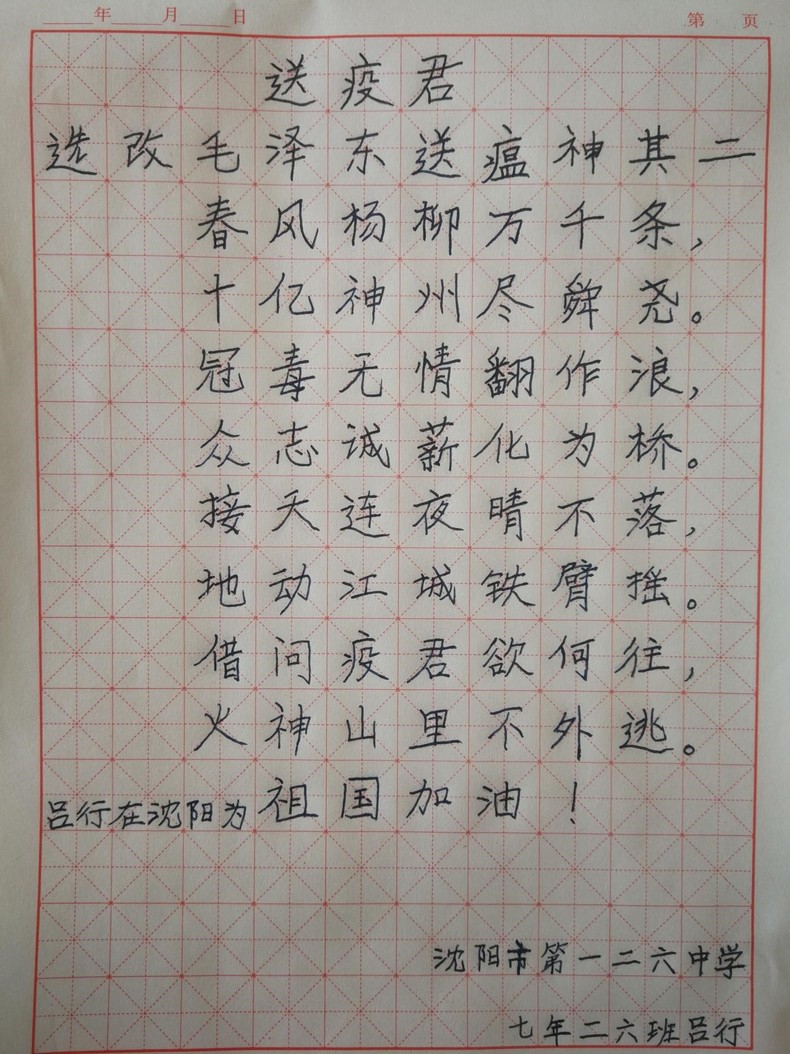 年 月 日 第 页
送疫君
选改毛泽东送瘟神其二
春风杨柳万千条，
十亿神州尽舜尧。
冠毒无情翻作浪，
众志诚薪化为桥。
接天连夜晴不落，
地动江城铁臂摇。
借问疫君欲何往，
火神山里不外逃。
吕行在沈阳为祖国加油！
沈阳市第一二六中学
七年二六班吕行